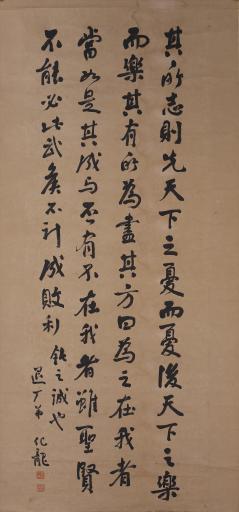 其所志則先天下之憂而憂後天下之樂
而樂其有所為盡其方曰為之在我者
當如是其成与否有不在我者雖聖賢
不能必此武侯不計成敗利鈍之誠也
退丁弟 化龍